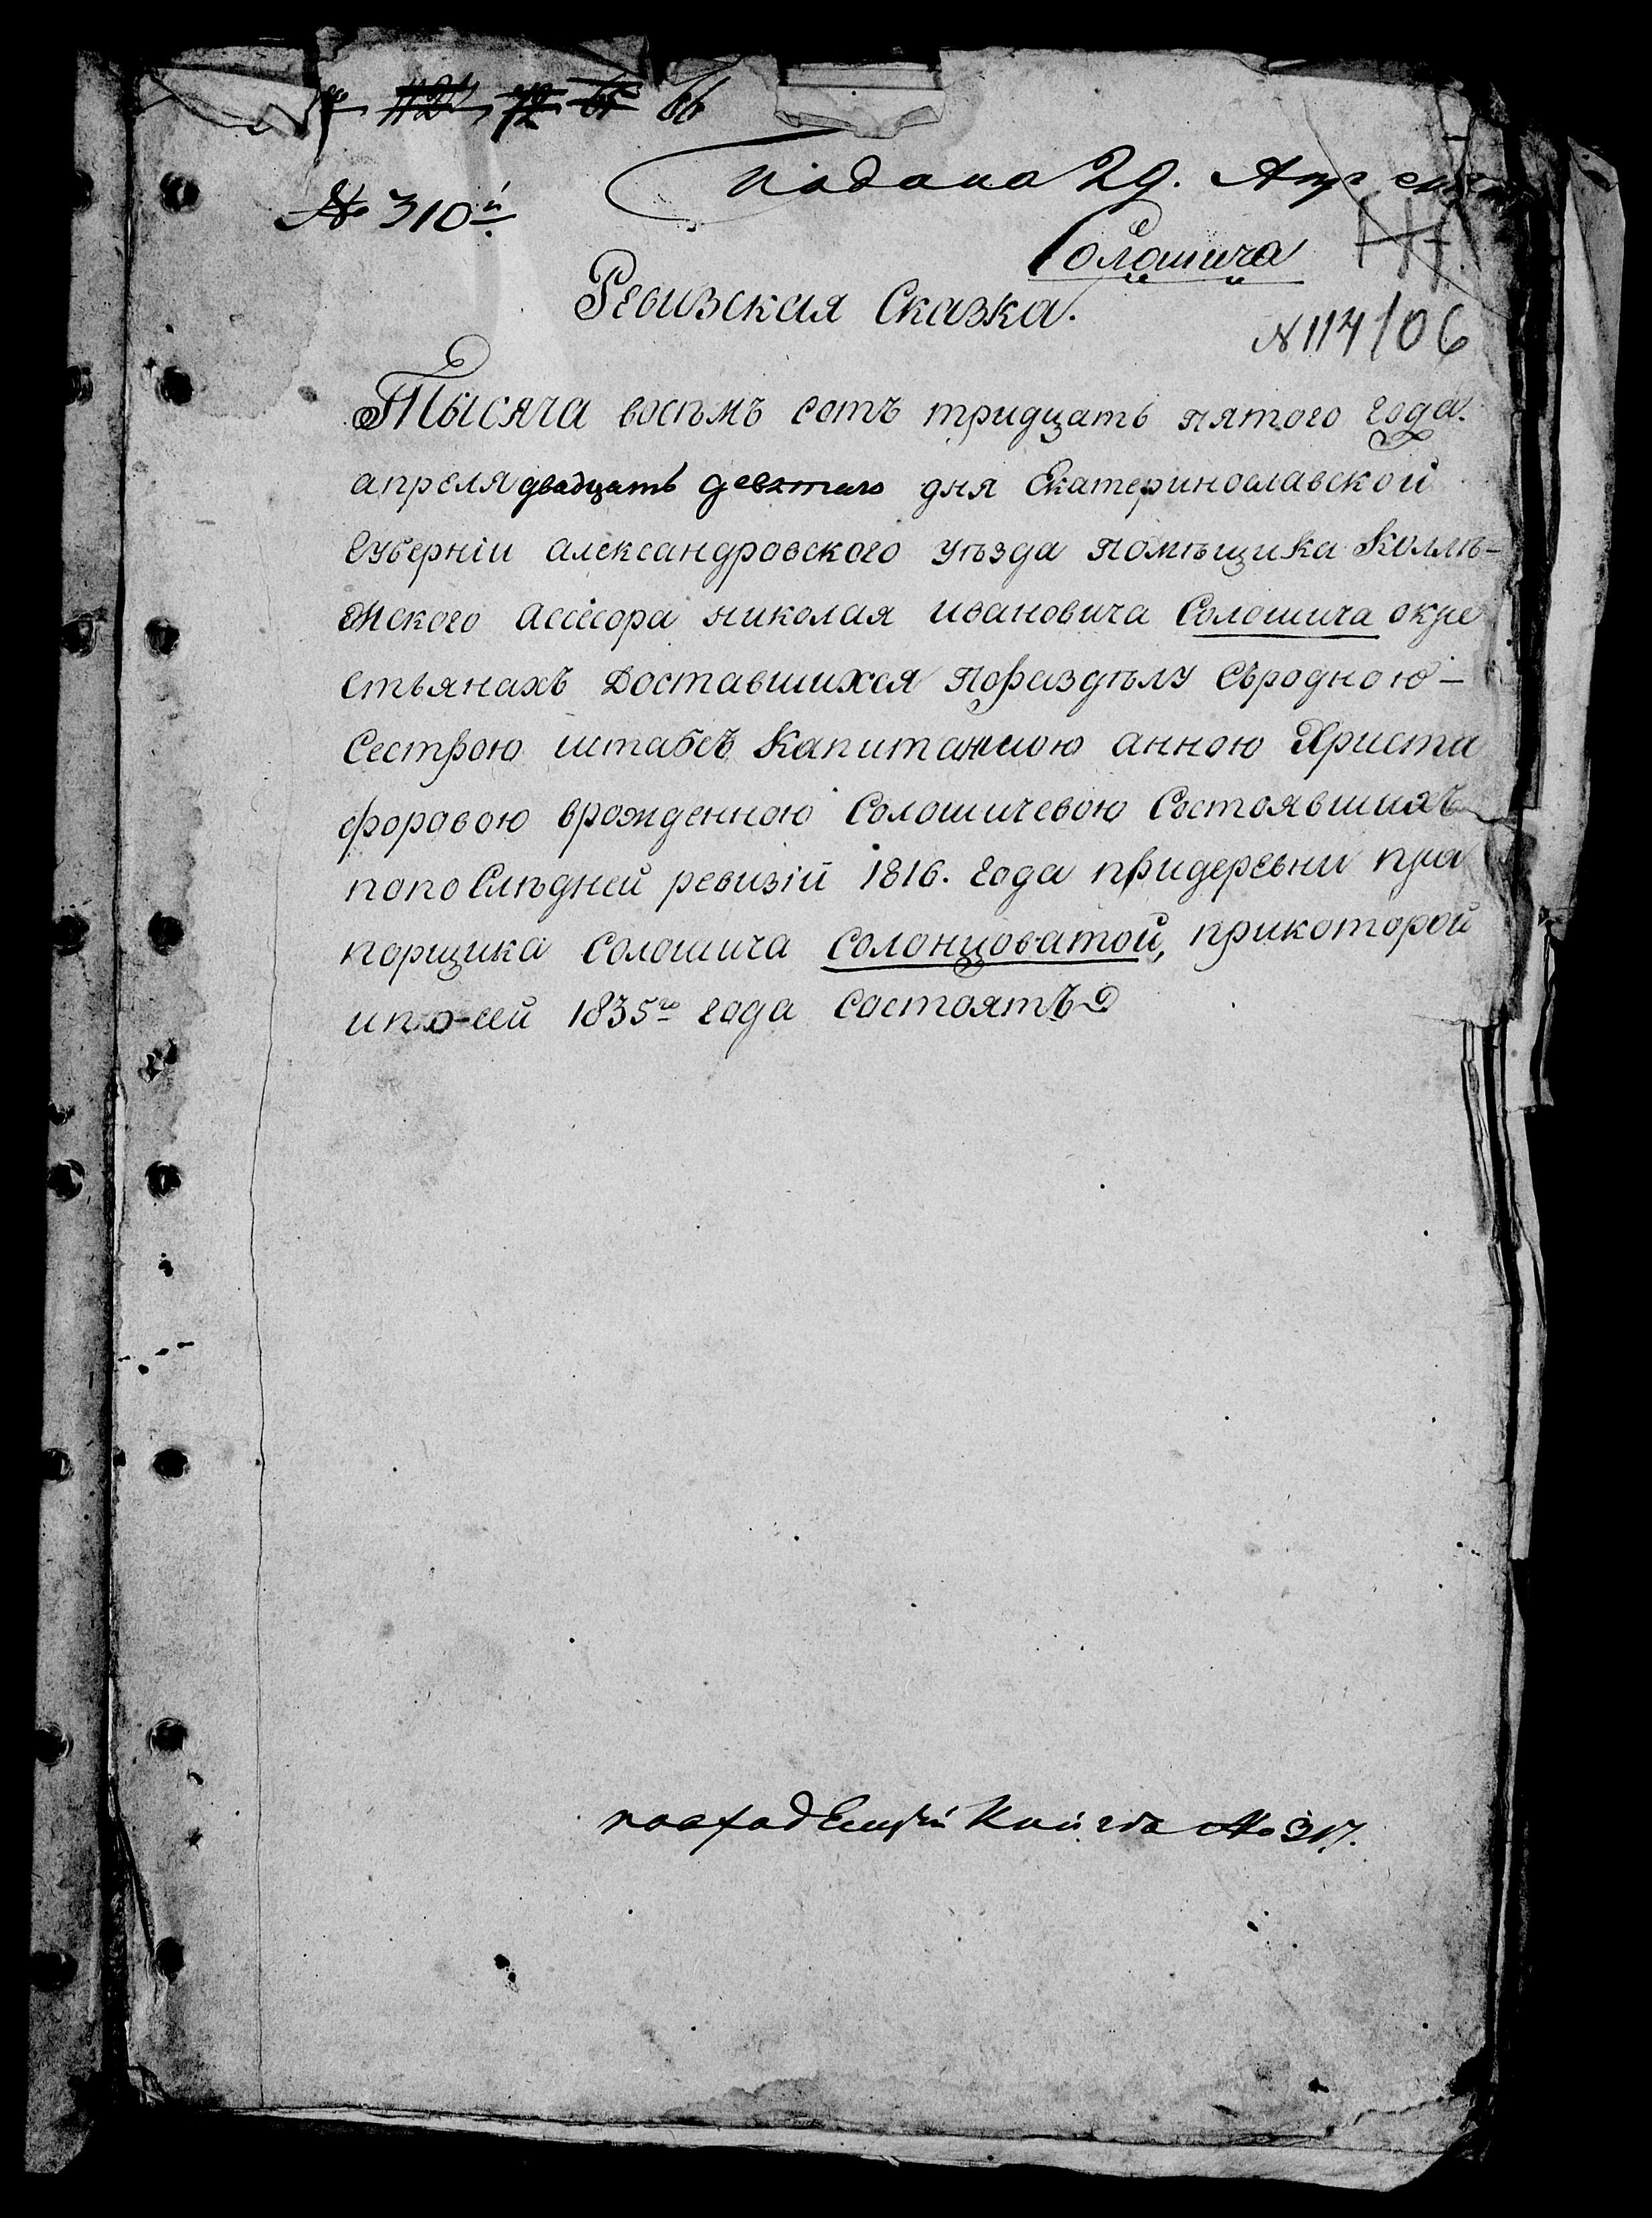 66
№ 310й
Подана 29. Апр
Солошича
Ревизская Сказка.
№ 114/06
Тысяча восѣмъ сотъ тридцать пятого года.
апреля двадцать девятого дня Екатеринославской
Губерніи александровского уѣзда помѣщика Коллѣ-
жского ассесора николая ивановича Солошича окре
стьянахъ доставшихся поразделу съродною-
Сестрою штабсъ капитаншою анною Христа
форовою врожденною Солошичевою Состоявшихъ
попослѣдней ревизій 1816. года придеревни пра
порщика Солошича солонцоватой, прикоторой
ипо-сей 1835го года состоятъ
повходящей Книгѣ № 317.